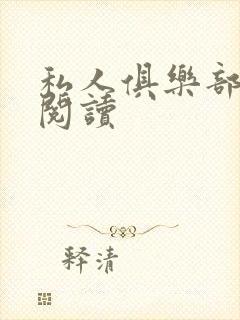 私人俱樂部
閱讀
释清